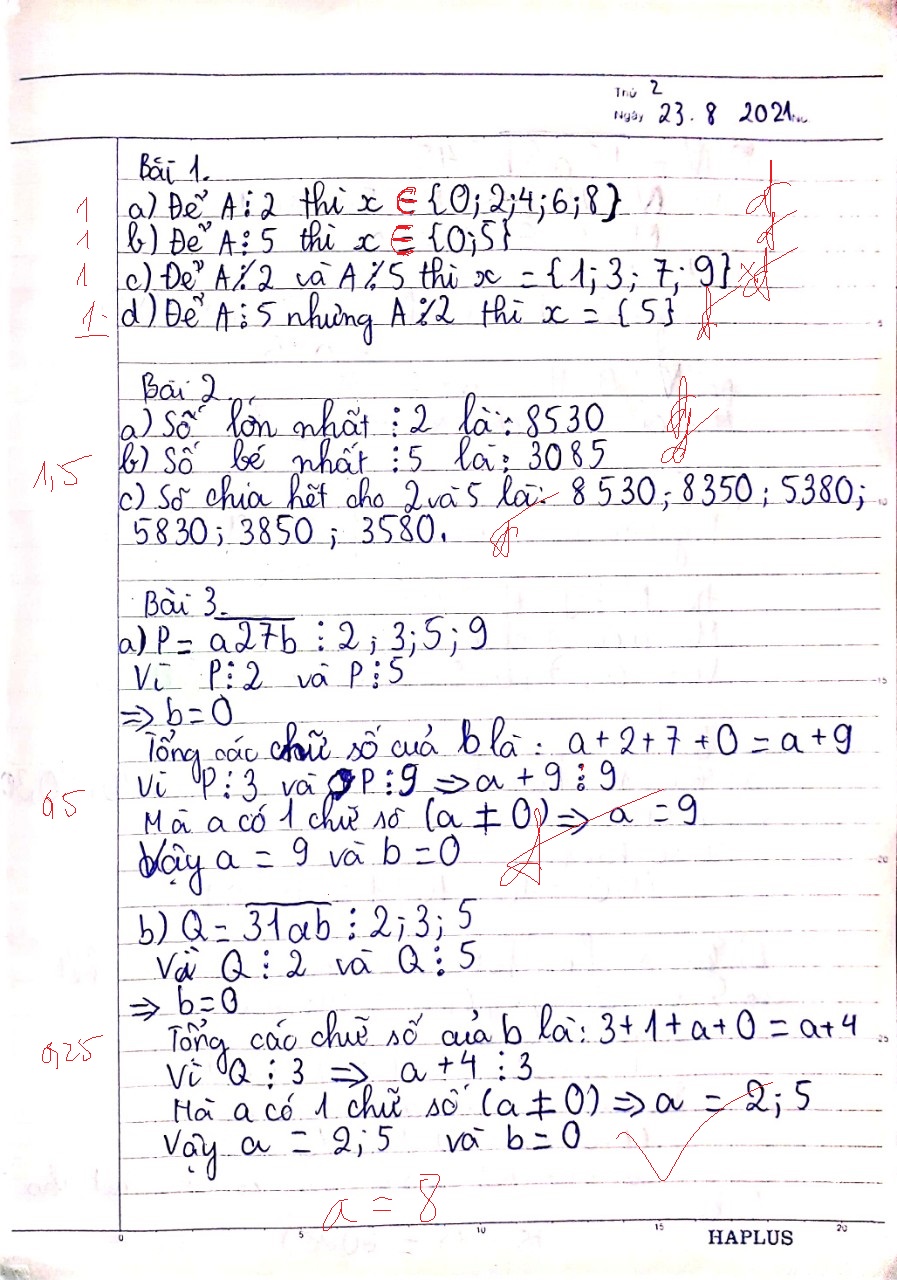 Thứ 2
Ngày 23.8 2021
Bài 1.
1 a) Để A⋮2 thì x ∈ {0;2;4;6;8}
1 b) Để A⋮5 thì x ∈ {0;5}
1 c) Để A⋮̸2 và A⋮̸5 thì x = {1; 3; 7; 9}
1 d) Để A⋮5 nhưng A⋮̸2 thì x = {5}
Bài 2
a) Số lớn nhất ⋮2 là: 8530
b) Số bé nhất ⋮5 là: 3085
1,5
c) Số chia hết cho 2 và 5 là: 8530; 8350; 5380;
5830; 3850; 3580.
Bài 3.
a) P = a27b ⋮ 2; 3; 5; 9
Vì P⋮2 và P⋮5
=> b=0
Tổng các chữ số của b là: a+2+7+0=a+9
Vì P⋮3 và P⋮9 => a+9⋮9
0,5
Mà a có 1 chữ số (a ≠ 0) => a = 9
Vậy a = 9 và b=0
b) Q = 31ab ⋮ 2; 3; 5
Vì Q ⋮ 2 và Q ⋮ 5
=> b=0
Tổng các chữ số của b là: 3+1+a+0=a+4
0,25
Vì Q ⋮ 3 => a+4⋮3
Mà a có 1 chữ số (a ≠ 0) => a = 2; 5
Vậy a = 2; 5 và b=0
a = 8
0 5 10 15 20
HAPLUS